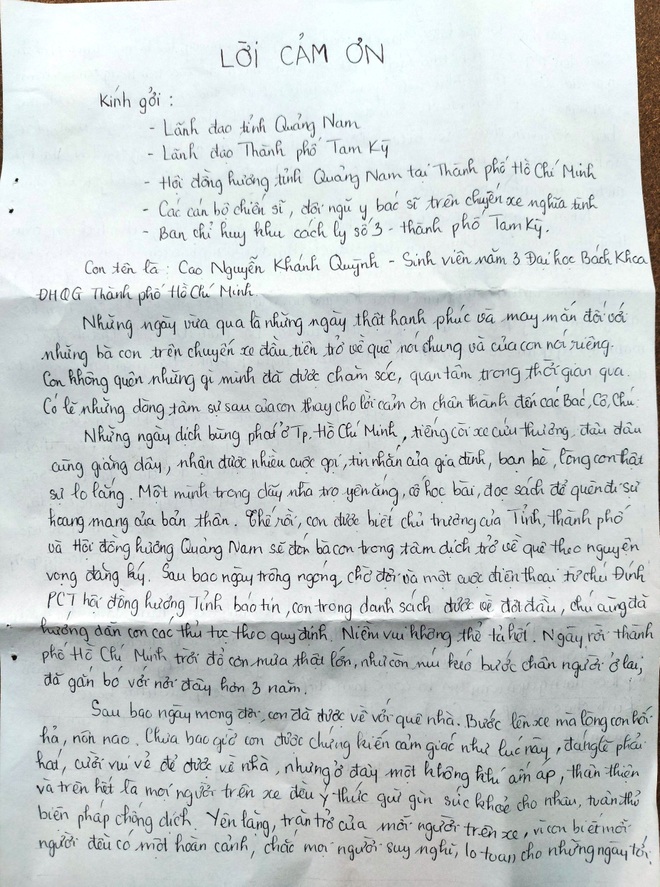 LỜI CẢM ƠN
Kính gởi :
- Lãnh đạo tỉnh Quảng Nam
- Lãnh đạo Thành phố Tam Kỳ
- Hội đồng hương tỉnh Quảng Nam tại Thành phố Hồ Chí Minh
- Các cán bộ chiến sĩ, đội ngũ y bác sĩ trên chuyến xe nghĩa tình
- Ban chỉ huy khu cách ly số 3 - thành phố Tam Kỳ.
Con tên là : Cao Nguyễn Khánh Quỳnh - Sinh viên năm 3 Đại học Bách Khoa
ĐHQG Thành phố Hồ Chí Minh.
Những ngày vừa qua là những ngày thật hạnh phúc và may mắn đối với
những bà con trên chuyến xe đầu tiên trở về quê nói chung và của con nói riêng.
Con không quên những gì mình đã được chăm sóc, quan tâm trong thời gian qua.
Có lẽ những dòng tâm sự sau của con thay cho lời cảm ơn chân thành đến các Bác, Cô, Chú.
Những ngày dịch bùng phát ở Tp. Hồ Chí Minh, tiếng còi xe cứu thương, đâu đâu
cũng giăng dây, nhận được nhiều cuộc gọi, tin nhắn của gia đình, bạn bè, lòng con thật
sự lo lắng. Một mình trong dãy nhà trọ yên ắng, cố học bài, đọc sách để quên đi sự
hoang mang của bản thân. Thế rồi, con được biết chủ trương của Tỉnh, thành phố
và Hội đồng hương Quảng Nam sẽ đón bà con trong tâm dịch trở về quê theo nguyện
vọng đăng ký. Sau bao ngày trông ngóng, chờ đợi và một cuộc điện thoại từ chú Định
PCT hội đồng hương Tỉnh báo tin, con trong danh sách được về đợt đầu, chú cũng đã
hướng dẫn con các thủ tục theo quy định. Niềm vui không thể tả hết. Ngày rời thành
phố Hồ Chí Minh trời đổ cơn mưa thật lớn, như còn níu kéo bước chân người ở lại,
đã gắn bó với nơi đây hơn 3 năm.
Sau bao ngày mong đợi, con đã được về với quê nhà. Bước lên xe mà lòng con hối
hả, nôn nao. Chưa bao giờ con được chứng kiến cảm giác như lúc này, đáng lẽ phải
hát, cười vui vẻ để được về nhà, nhưng ở đây một không khí ấm áp, thân thiện
và trên hết là mọi người trên xe đều ý thức giữ gìn sức khoẻ cho nhau, tuân thủ
biện pháp chống dịch. Yên lặng, trăn trở của mỗi người trên xe, vì con biết mỗi
người đều có một hoàn cảnh, chắc mọi người suy nghĩ, lo toan cho những ngày tới.